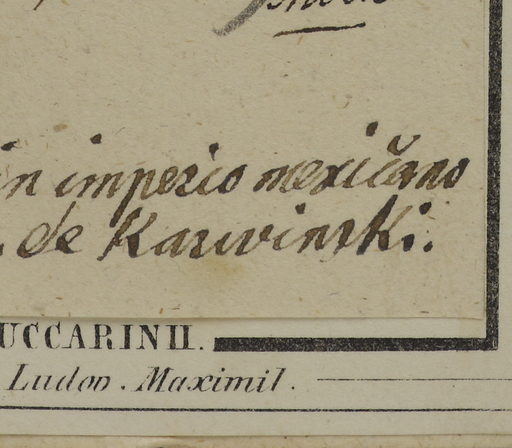 in imperio mexicano
de Karwinski.
UCCARINII.
Ludov. Maximil.